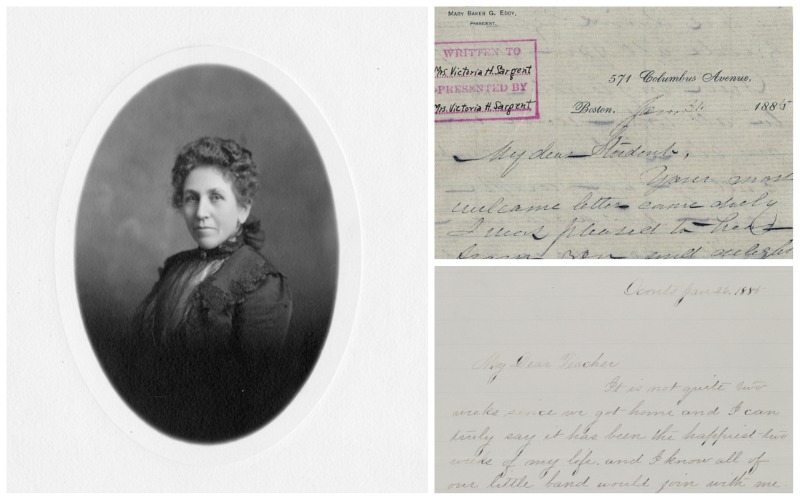 MARY BAKER G. EDDY,
PRESIDENT.
WRITTEN TO
Mrs. Victoria H. Sargent
PRESENTED BY
Mrs. Victoria H. Sargent
571 Columbus Avenue,
Boston, Jan 1885
My dear Student,
Your most
welcome letter came duly
I was pleased to hear
from you and delight
Oconto Jan 26, 1885
My Dear Teacher
It is not quite two
weeks since we got home and I can
truly say it has been the happiest two
weeks of my life, and I know all of
our little band would join with me